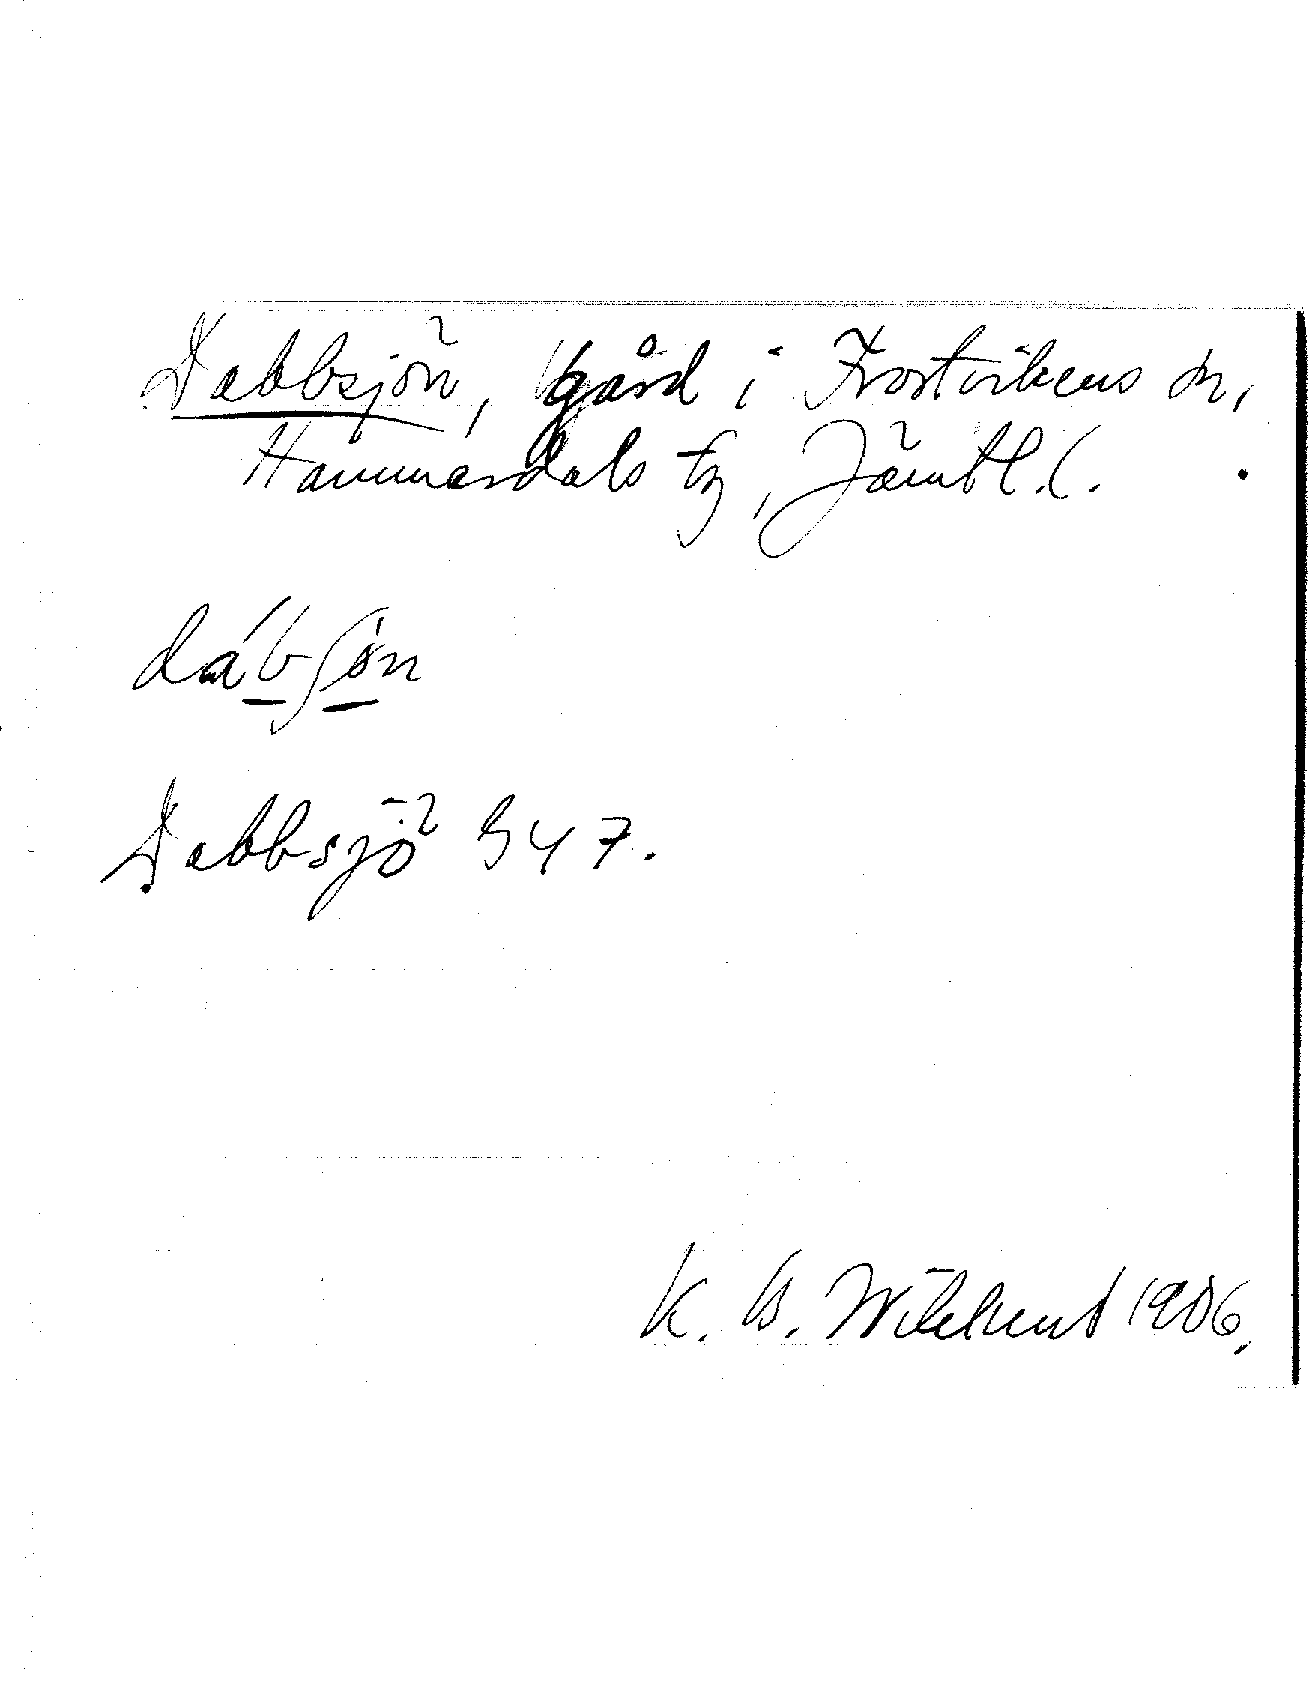 Dabbsjön, gård i Frostvikens sn,
Hammerdals tg, Jämtl. l.
dábʃøn
Dabbsjö G 47.
K. B. Wiklund 1906.